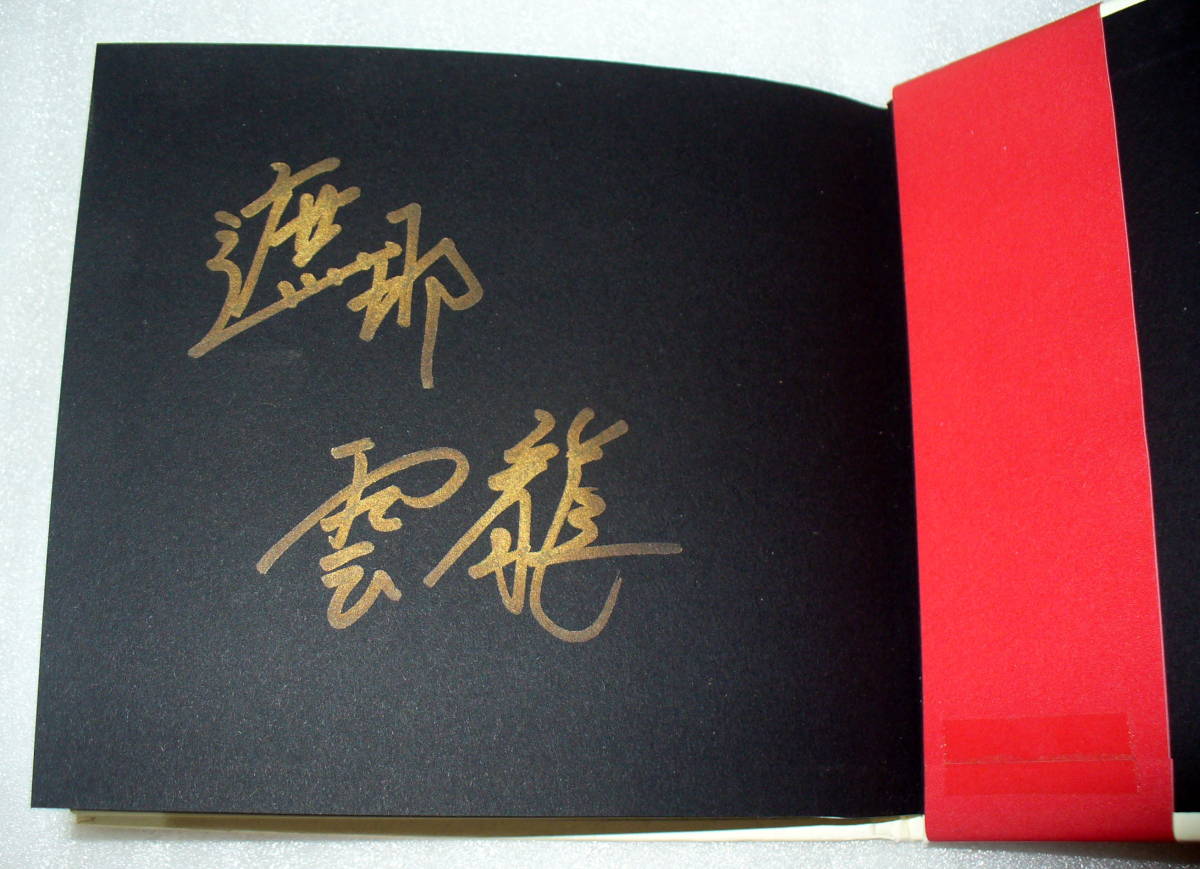 遮那
雲龍